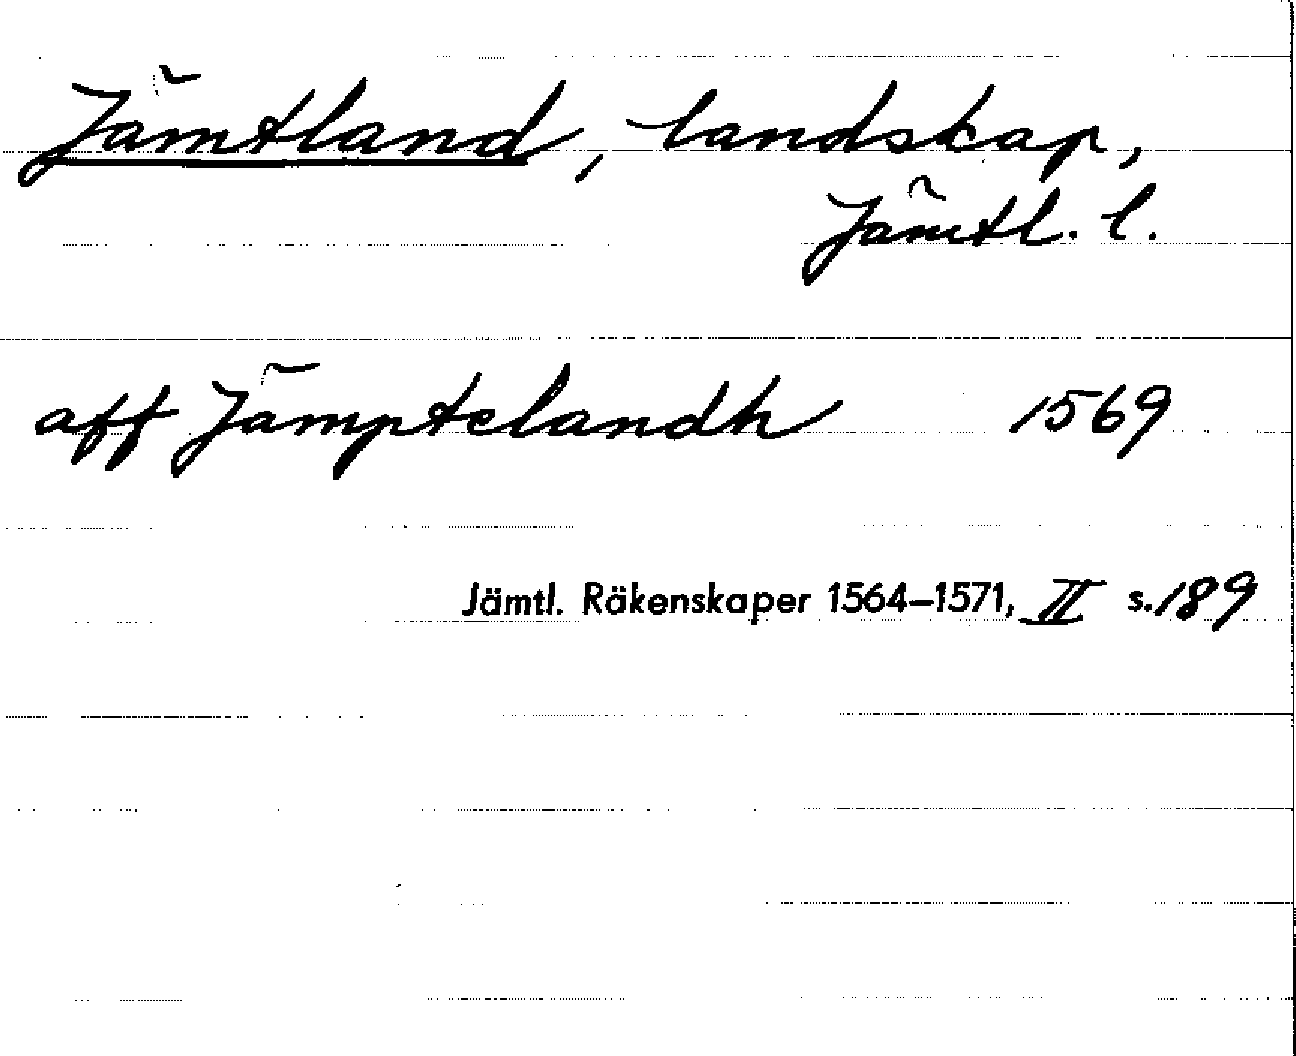 Jämtland, landskap,
Jämtl. l.
aff Jämptelandh 1569
Jämtl. Räkenskaper 1564–1571, II s. 189